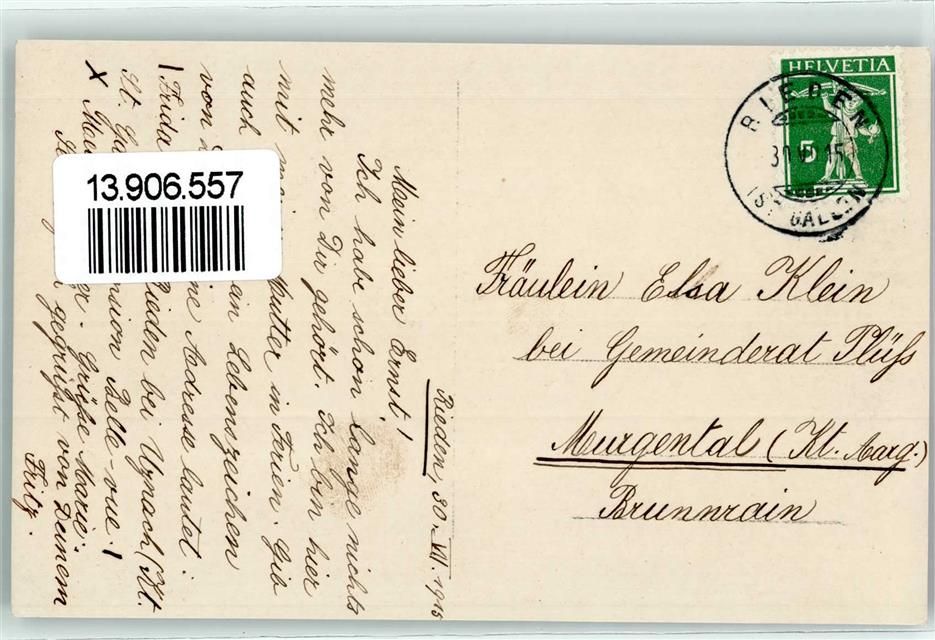 HELVETIA
5
RIEDEN
(ST. GALLEN)
Fräulein Elsa Klein
bei Gemeinderat Plüss
Murgental (Kt. Aarg.)
Brunnrain
Rieden, 30. VII. 1915
Mein lieber Ernst!
Ich habe schon lange nichts
mehr von Dir gehört. Ich bin hier
mit Mutter in Ferien. Gib
auch ein Lebenszeichen
von Adresse lautet:
Frida Rieden bei Uznach (Kt.
St. Pension Belle-vue!
Grüsse Marie.
gegrüsst von Deinem
Fritz.
13.906.557